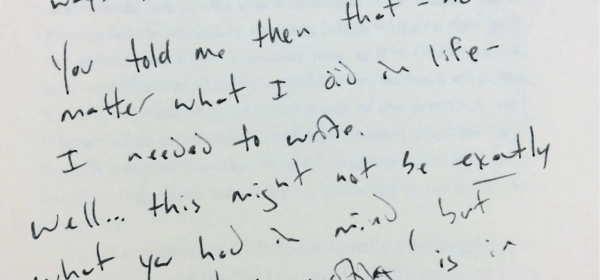 You told me then that - no
matter what I did in life -
I needed to write.
Well... this might not be exactly
what you had in mind, but
is in